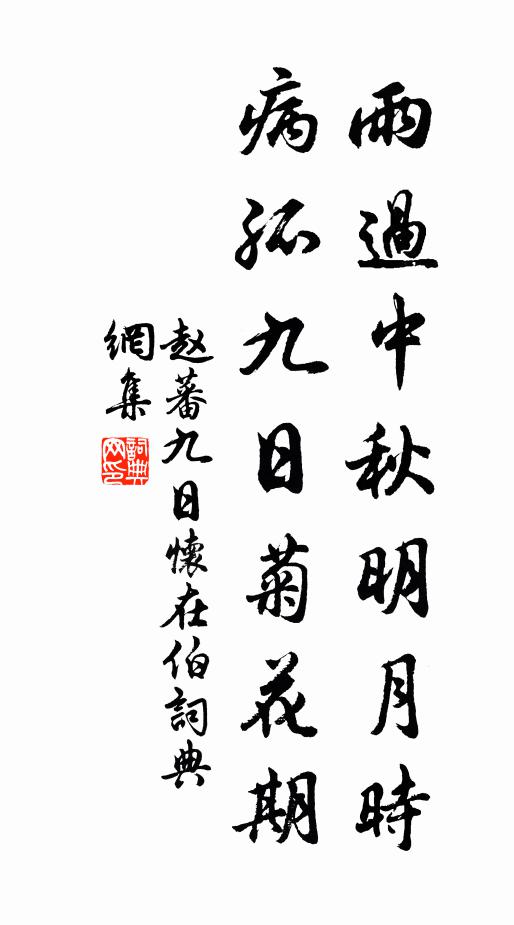 雨過中秋明月時
病孤九日菊花期
赵蕃九日懷在伯詞典
網集
詞典
网印